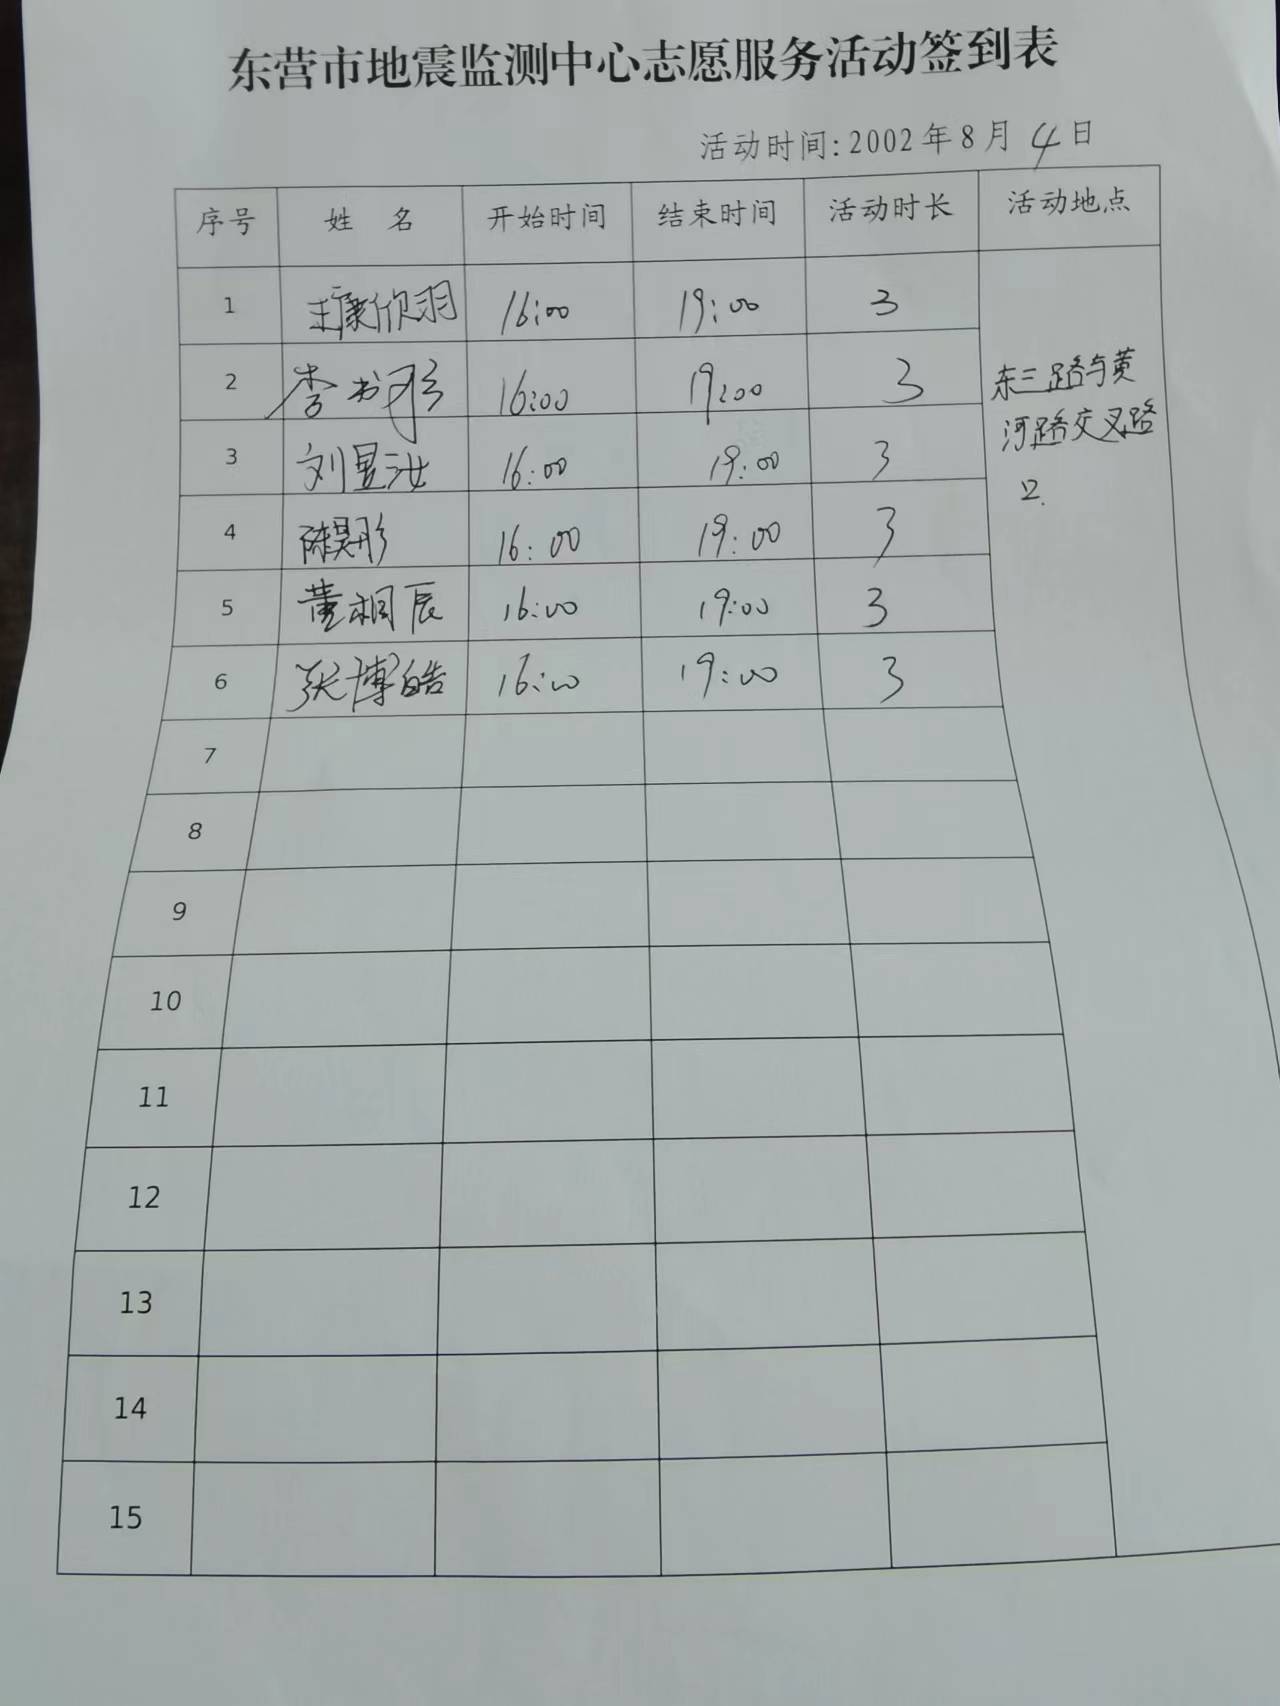 东营市地震监测中心志愿服务活动签到表
活动时间:2002年8月4日
序号 姓 名 开始时间 结束时间 活动时长 活动地点
1 王康欣羽 16:00 19:00 3
2 李书彤 16:00 19:00 3
东三路与黄
河路交叉路
口.
3 刘昱汝 16:00 19:00 3
4 陈昊彤 16:00 19:00 3
5 董桐辰 16:00 19:00 3
6 张博皓 16:00 19:00 3
7
8
9
10
11
12
13
14
15